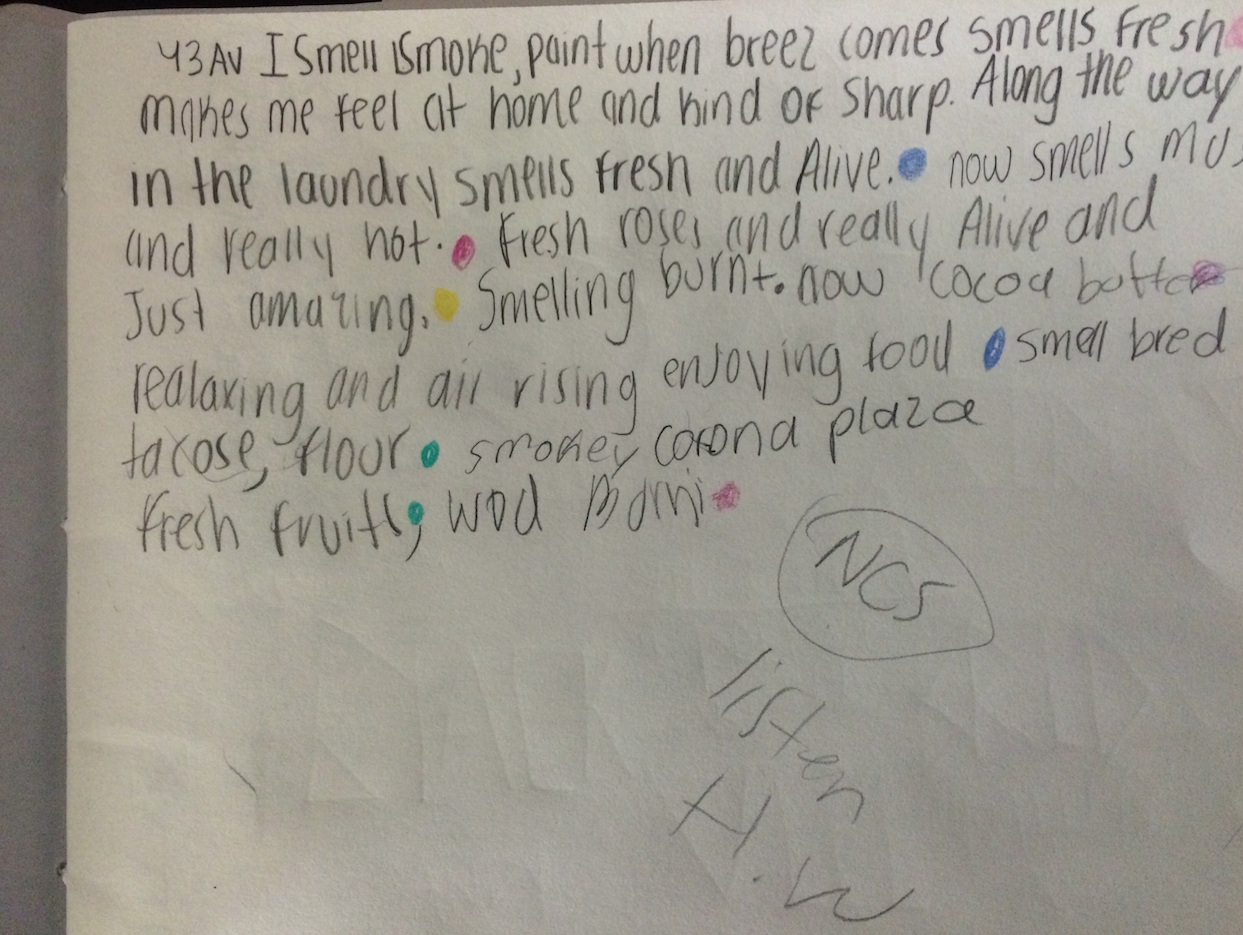 43 AV I Smell smoke, paint when breez comes smells fresh
makes me feel at home and kind of sharp. Along the way
in the laundry smells fresh and Alive. now smells
and really hot. Fresh roses and really Alive and
Just amazing. Smelling burnt. now cocoa butter
realaxing and air rising enjoying food smell bred
tacose, flour smokey corona plaza
fresh fruits, wod
NCS
listen
H.W